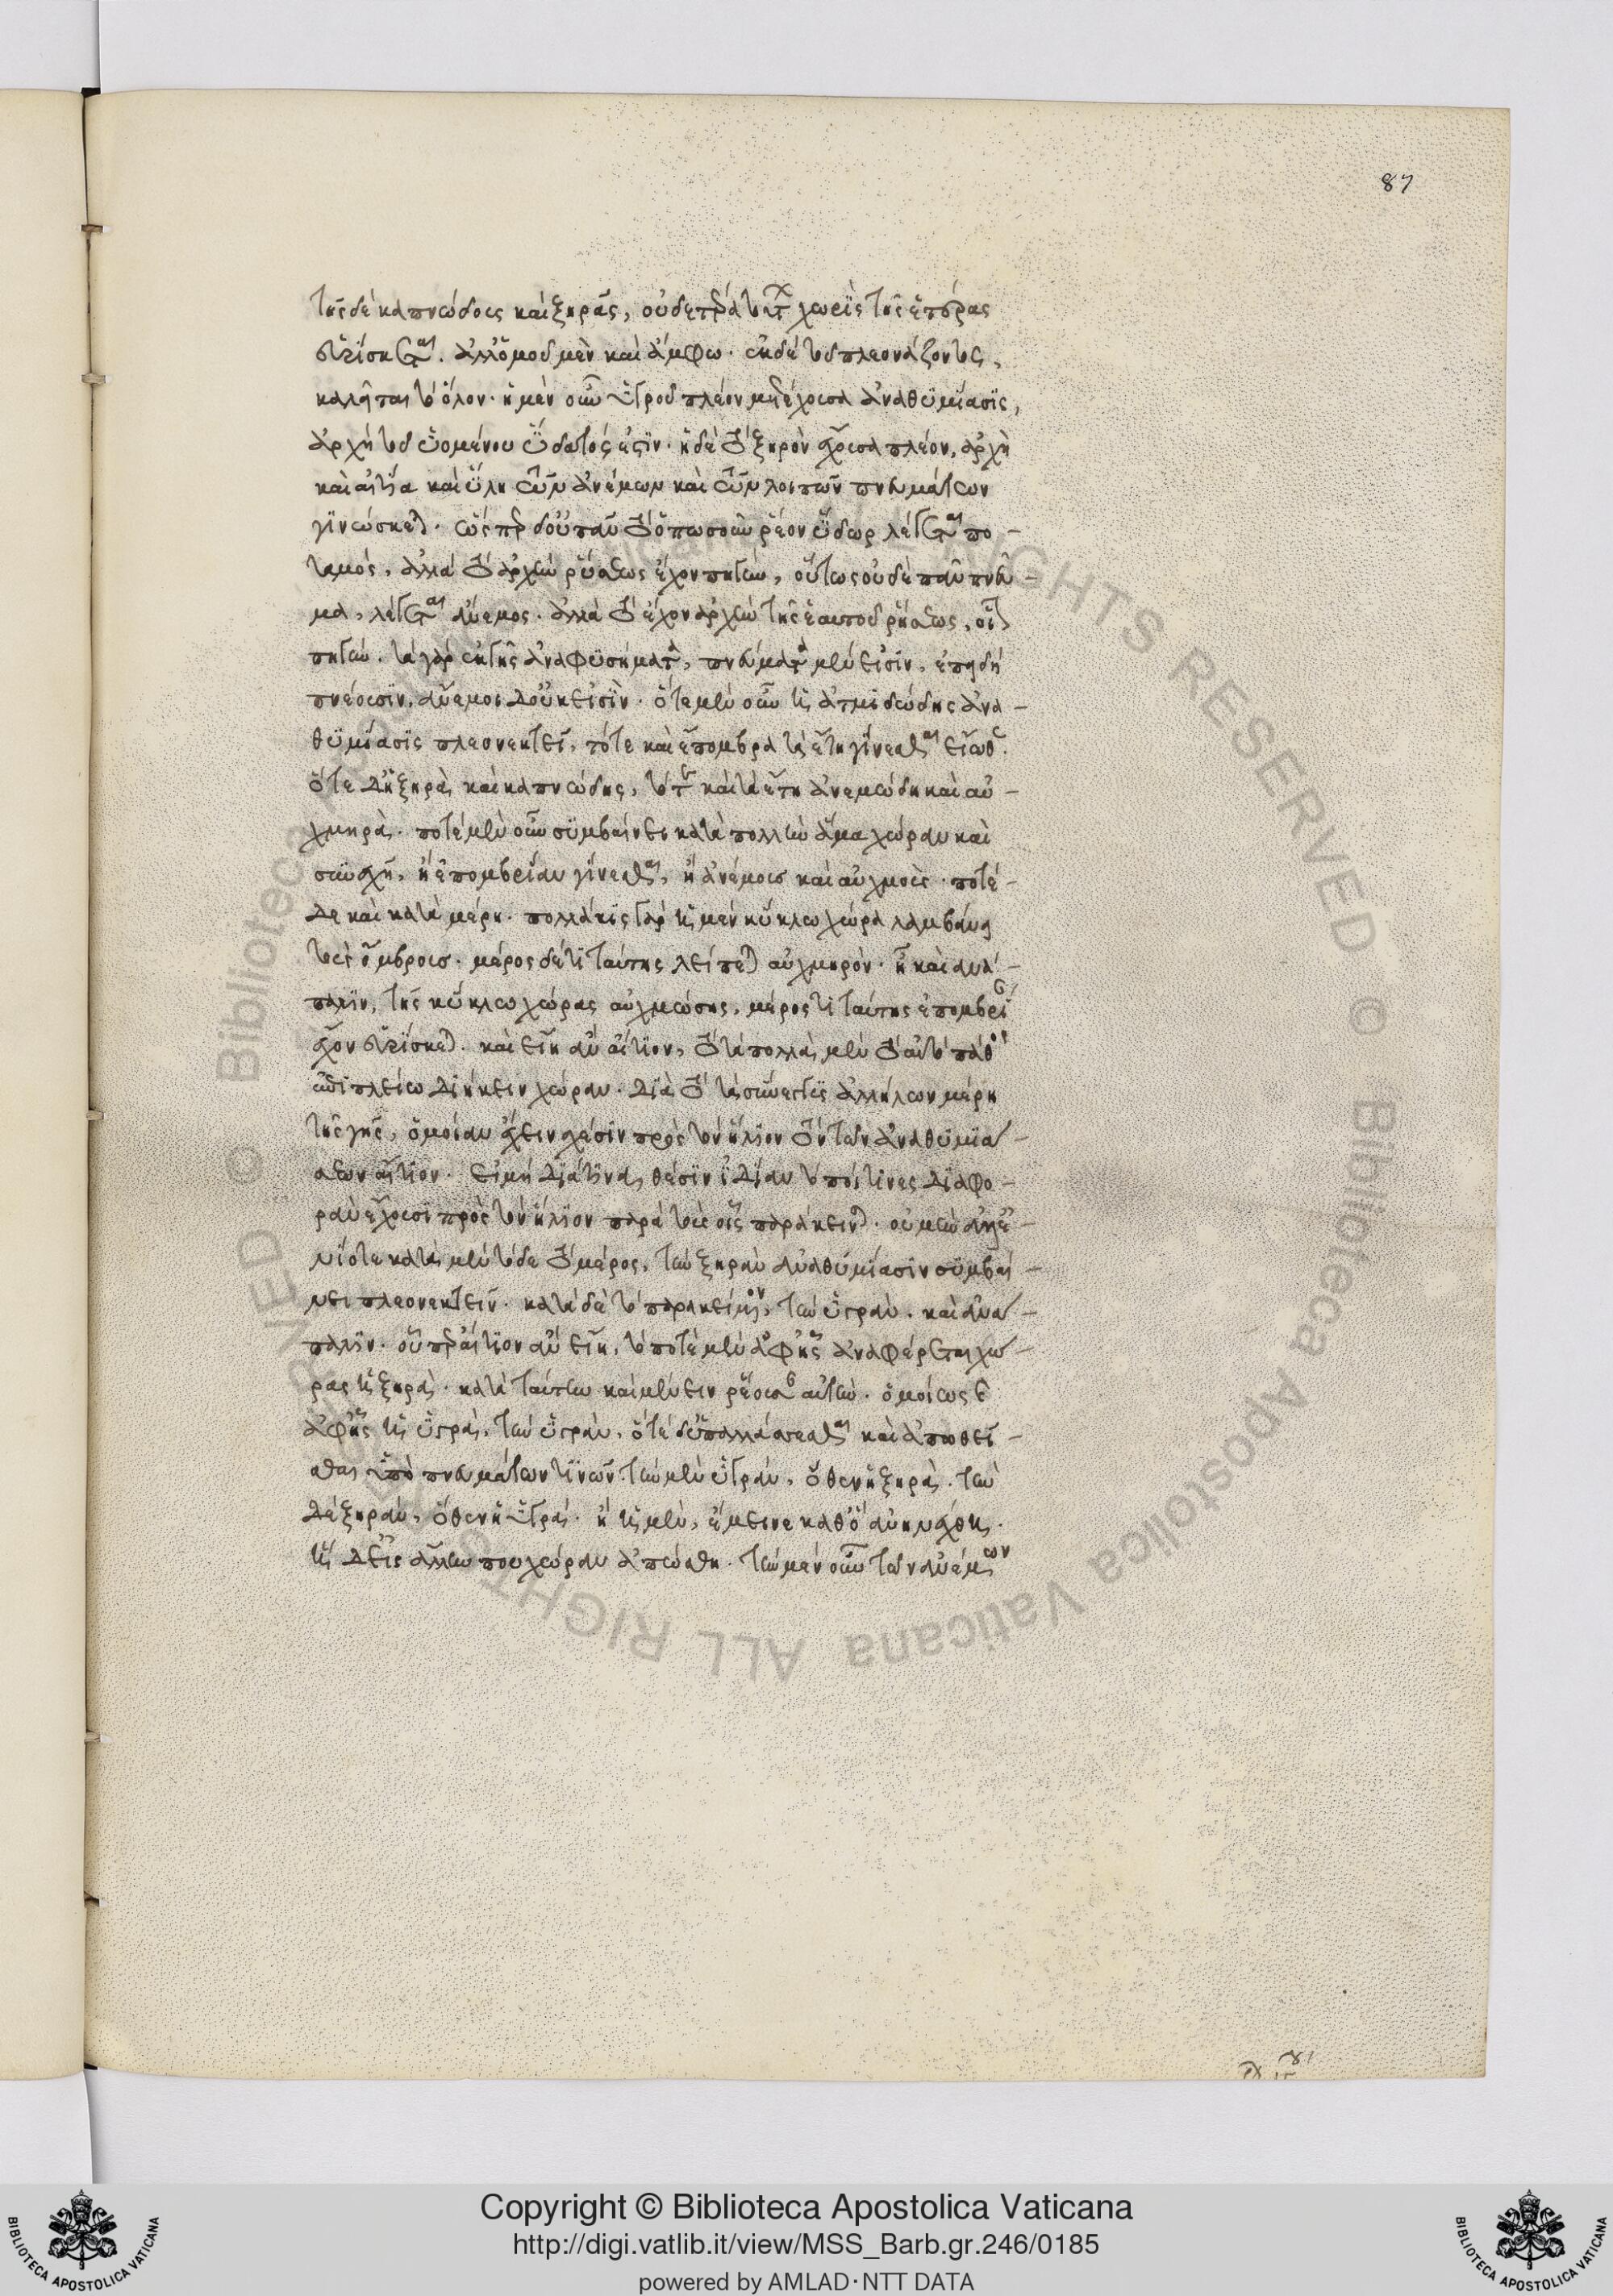 87
τῆς δὲ καπνώδους καὶ ξηρᾶς, οὐδετέρα τούτ χωρὶς τῆς ἑτέρας
εὑρίσκεται. ἀλλ' ὁμοῦ μὲν καὶ ἄμφω. ἐκ δὲ τοῦ πλεονάζοντος,
καλεῖται τὸ ὅλον. ἡ μὲν οὖν ὑγροῦ πλέον μετέχουσα ἀναθυμίασις,
ἀρχὴ τοῦ ὑομένου ὕδατός ἐστιν. ἡ δὲ τὸ ξηρὸν ἔχουσα πλέον, ἀρχὴ
καὶ αἰτία καὶ ὕλη τῶν ἀνέμων καὶ τῶν λοιπῶν πνευμάτων
γινώσκεται. ὥσπερ δ' οὐ πᾶν τὸ ὁπωσοῦν ῥέον ὕδωρ λέγεται πο-
ταμός, ἀλλὰ τὸ ἀρχὴν ῥεύσεως ἔχον πηγὴν, οὕτως οὐδὲ πᾶν πνεῦ-
μα, λέγεται ἄνεμος. ἀλλὰ τὸ ἔχον ἀρχὴν τῆς ἑαυτοῦ ῥήσεως, οἷον
πηγὴν. τὰ γὰρ ἐκ γῆς ἀναφυσήματα, πνεύματα μὲν εἰσὶν, ἐπειδὴ
πνέουσιν, ἄνεμοι δ' οὐκ εἰσὶν. ὅτε μὲν οὖν ἡ ἀτμιδώδης ἀνα-
θυμίασις πλεονεκτεῖ, τότε καὶ ἔπομβρα τὰ ἔτη γίνεσθαι εἴωθε.
ὅτε δ' ἡ ξηρὰ καὶ καπνώδης, τότε καὶ τὰ ἔτη ἀνεμώδη καὶ αὐ-
χμηρὰ. ποτὲ μὲν οὖν συμβαίνει κατὰ πολλὴν ἅμα χώραν καὶ
συνεχῆ, ἢ ἐπομβρίαν γίνεσθαι, ἢ ἀνέμους καὶ αὐχμοὺς. ποτὲ-
δὲ καὶ κατὰ μέρη. πολλάκις γὰρ ἡ μὲν κύκλω χώρα λαμβάνει
τοὺς ὄμβρους. μέρος δέ τι ταύτης λείπεται αὐχμηρὸν. ἢ καὶ ἀνά-
παλιν, τῆς κύκλω χώρας αὐχμώσης, μέρος τι ταύτης ἐπομβρί
ἔχον εὑρίσκεται. καὶ εἴη ἂν αἴτιον, τοῦ τὰ πολλὰ μὲν τὸ αὐτὸ πάθος
ἐπὶ πλείω διήκειν χώραν. διὰ τὸ τὰ σύνεγγυς ἀλλήλων μέρη
τῆς γῆς, ὁμοίαν ἔχειν σχέσιν πρὸς τὸν ἥλιον τὸν τῶν ἀναθυμιά-
σεων αἴτιον. εἰ μὴ διά τινα θέσιν ἰδίαν τόποι τινὲς διαφο-
ρὰν ἔχουσι πρὸς τὸν ἥλιον παρὰ τοὺς οἷς παράκεινται. οὐ μὴν ἀλλ' ἐ-
νίοτε κατὰ μὲν τόδε τὸ μέρος, τὴν ξηρὰν ἀναθυμίασιν συμβαί-
νει πλεονεκτεῖν. κατὰ δὲ τὸ παρακείμενον, τὴν ὑγρὰν. καὶ ἀνά-
παλιν. οὗπερ αἴτιον ἂν εἴη, τὸ ποτὲ μὲν ἀφ' ἧς ἀναφέρεται χώ-
ρας ἡ ξηρὰ. κατὰ ταύτην καὶ μένειν ῥέουσαν αὐτὴν. ὁμοίως καὶ
ἀφ' ἧς ἡ ὑγρὰ, τὴν ὑγρὰν. ὁτὲ δ' ὑπαλλάττεσθαι καὶ ἀπωθεῖ-
σθαι ὑπὸ πνευμάτων τινῶν. τὴν μὲν ὑγρὰν, ὅθεν ἡ ξηρὰ. τὴν
δὲ ξηρὰν, ὅθεν ἡ ὑγρά. ἢ ἡ μὲν, ἔμεινε καθ' ὃ ἀνηνέχθη.
ἡ δ' εἰς ἄλλην που χώραν ἀπώσθη. τὴν μὲν οὖν τῶν ἀνέμων
Copyright © Biblioteca Apostolica Vaticana
http://digi.vatlib.it/view/MSS_Barb.gr.246/0185
powered by AMLAD·NTT DATA